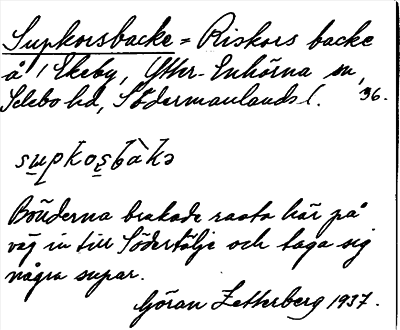 Supkorsbacke = Riskors backe
å / Ekeby, Ytter-Enhörna sn,
Selebo hd, Södermanlands l. '36.
supkos̱bàkə
Bönderna brukade rasta här på
väg in till Södertälje och taga sig
några supar.
Göran Zetterberg 1937.